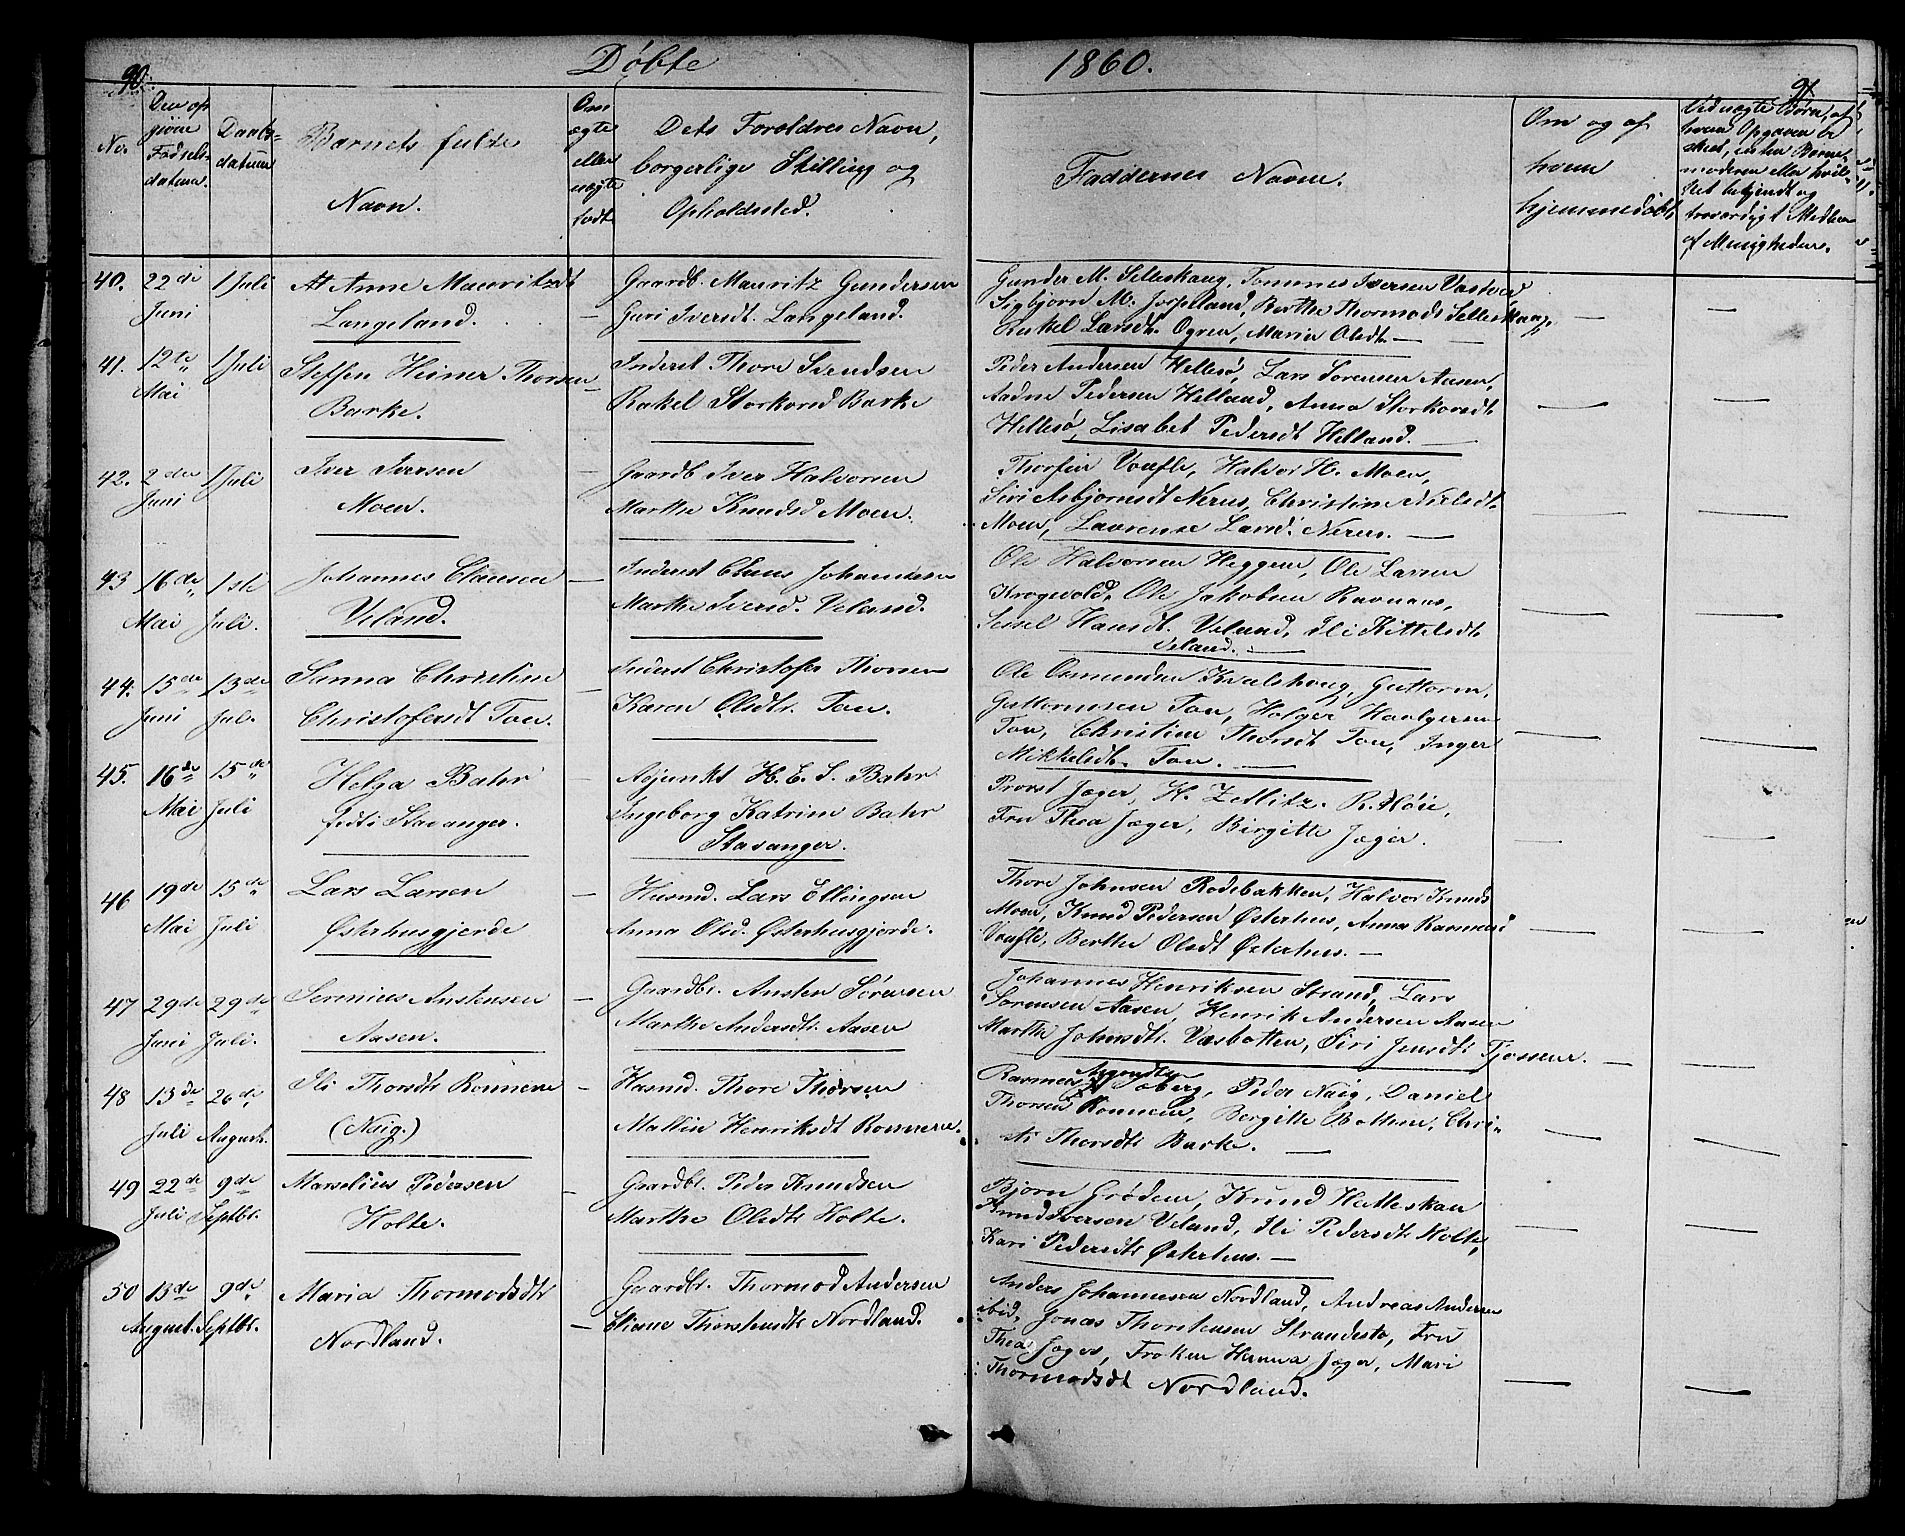 90.
Døbte
1860.
91
No.
Den op
givne
Fødsels-
datum.
Daabs-
datum
Barnets fulde
Navn.
Om
ægte
eller
uægte
født
Dets Foroldres Navn,
borgerlige Stilling og
Opholdsted.
Faddernes Navne.
Om og af
hvem
hjemmedøbt
40.
22de
Juni
1 Juli
Anne Mauritzdt
Langeland.
Gaardb. Mauritz Gundersen
Guri Iversdt. Langeland.
Gunder M. Selleskaug, Tommes Iversen
Sigbjørn M. Jørpeland, Berthe Thormodsdt Selleskaug,
Rakel Larsdt. Ogren, Maria Olsdt.
41.
12te
Mai
1 Juli
Steffen Heiner Thorsen
Barke.
Inderst Thore Svendsen
Rakel Storkorsd Barke
Peder Andersen Hellesø, Lars Sorensen Aasen,
Aadne Pedersen Helland, Anna Storkorsdt.
Hellesø, Lisabet Pedersdt Helland.
42.
2den
Juni
1 Juli
Iver Iversen
Moen.
Gaardb Iver Halvorsen
Marthe Knudsd Moen.
Thorfin Voufle, Halvor H. Moen,
Siri Asbjornsdt Nerus, Christine Nielsdt.
Moen, Laurense Larsd. Nerus.
43
16de
Mai
1ste
Juli.
Johannes Clausen
Veland.
Inderst Claus Johannesen
Marthe Iversd. Veland.
Ole Halvorsen Heggem, Ole Larsen
Krogevold, Ole Jakobsen Ravnaas,
Sessel Hansdt. Veland, Ili Kittelsdt.
Veland.
44.
15de
Juni
15de
Jul.
Sanna Christine
Christofersdt Tou.
Inderst Christofer Thorsen
Karen Olsdt. Tou.
Ole Osmundsen Kvalshaug, Guttorm
Guttormsen Tou, Holger Haalgersen
Tou, Christine Thorsdt Tou, Inger
Mikkelsdt. Tou.
45.
16de
Mai
15de
Juli
Helga Bahr
født i Stavanger.
Adjunkt H. E. S. Bahr
Ingeborg Katrine Bahr
Stavanger.
Provst Jæger, H. Zetlitz, R. Høie,
Fru Thea Jæger, Birgitte Jæger.
46
19de
Mai
15de
Juli
Lars Larsen
Østerhusgjerde
Husmd. Lars Ellingsen
Anna Olsd. Østerhusgjerde.
Thore Johnsen Rodebakken, Halvor Knuds
Moen, Knud Pedersen Østerhus, Anna Rasmusd
Voufle, Berthe Olsdt Østerhus.
47
29de
Juni
29de
Juli.
Serenius Austensen
Aasen.
Gaardbr. Austen Sørensen
Marthe Andersdt. Aasen
Johannes Henriksen Strand, Lars
Sorensen Aasen, Henrik Andersen Aasen
Marthe Johnsdt. Vasbotten, Siri Jensdt. Tjossem.
48
13de
Juli
26de
August.
Ili Thorsdt. Ronnene
(Naig.)
Husmd. Thore Thorsen
Mallin Henriksdt Ronnene.
Rasmus Soberg, Peder Naig, Daniel
Thorsen Ronnene, Bergitte Botten, Chri-
sti Thorsdt. Barke.
49
22de
Juli
9de
Septbr.
Marselius Pedersen
Holte.
Gaardbr. Peder Knudsen
Marthe Olsdt. Holte.
Bjørn Grødem, Knud Helleskau
Knud Iversen Veland, Ili Pedersdt. Holte,
Kari Pedersdt. Østerhus.
50
13de
August.
9de
Septbr.
Maria Thormodsdt.
Nordland.
Gaardbr. Thormod Andersen
Eliane Thorstensdt. Nordland.
Anders Johannesen Nordland, Andreas Andersen
ibid, Jonas Thorstensen Strandestø, Fru
Thea Jæger, Froken Hanna Jæger, Mari
Thormodsdt Nordland.